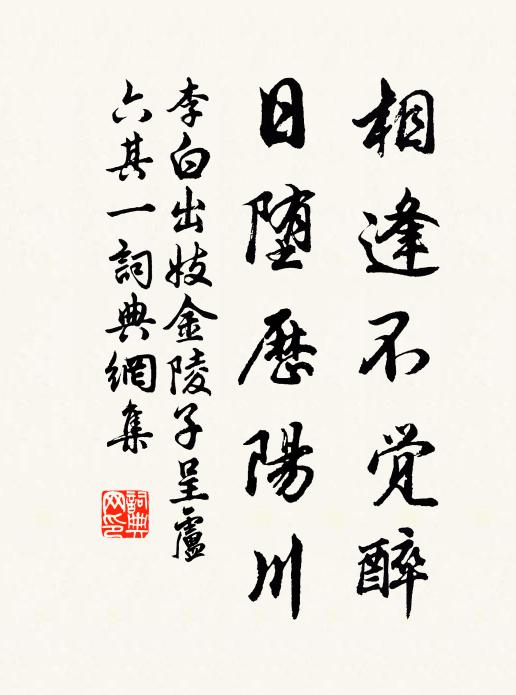 相逢不觉醉
日堕历陽川
李白出妓金陵子呈盧
六其一詞典網集
詞典
网印